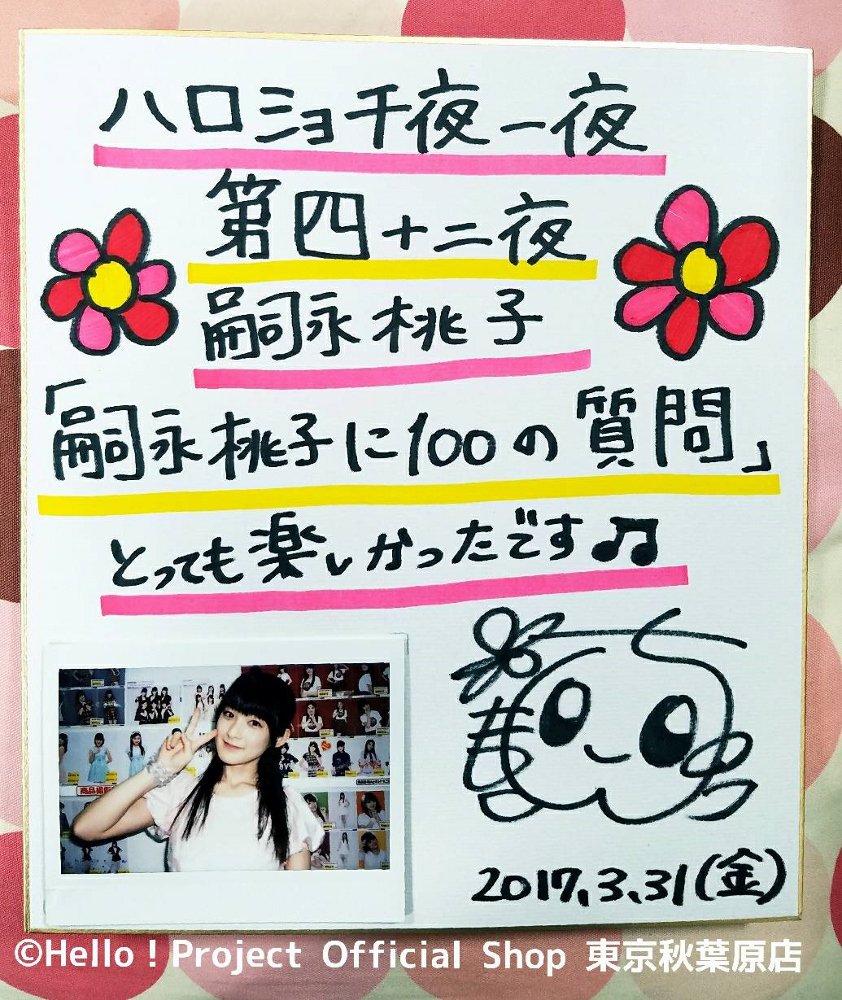 ハロショ千夜一夜
第四十二夜
嗣永桃子
「嗣永桃子に100の質問」
とっても楽しかったです♫
2017.3.31(金)
©Hello! Project Official Shop 東京秋葉原店